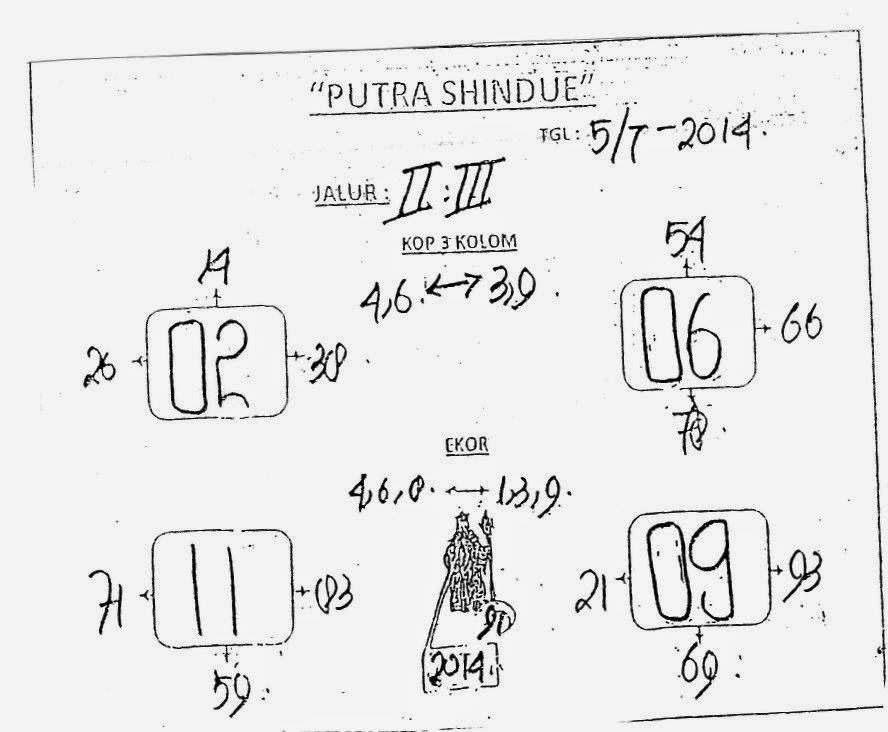 "PUTRA SHINDUE"
TGL: 5/7-2014.
JALUR: II : III
KOP 3 KOLOM
4,6. ↔ 3,9.
14
26 02 38
54
06 66
78.
EKOR
4,6,8. ↔ 1,3,9.
71 11 83
59.
21 09 93
69.
2014.